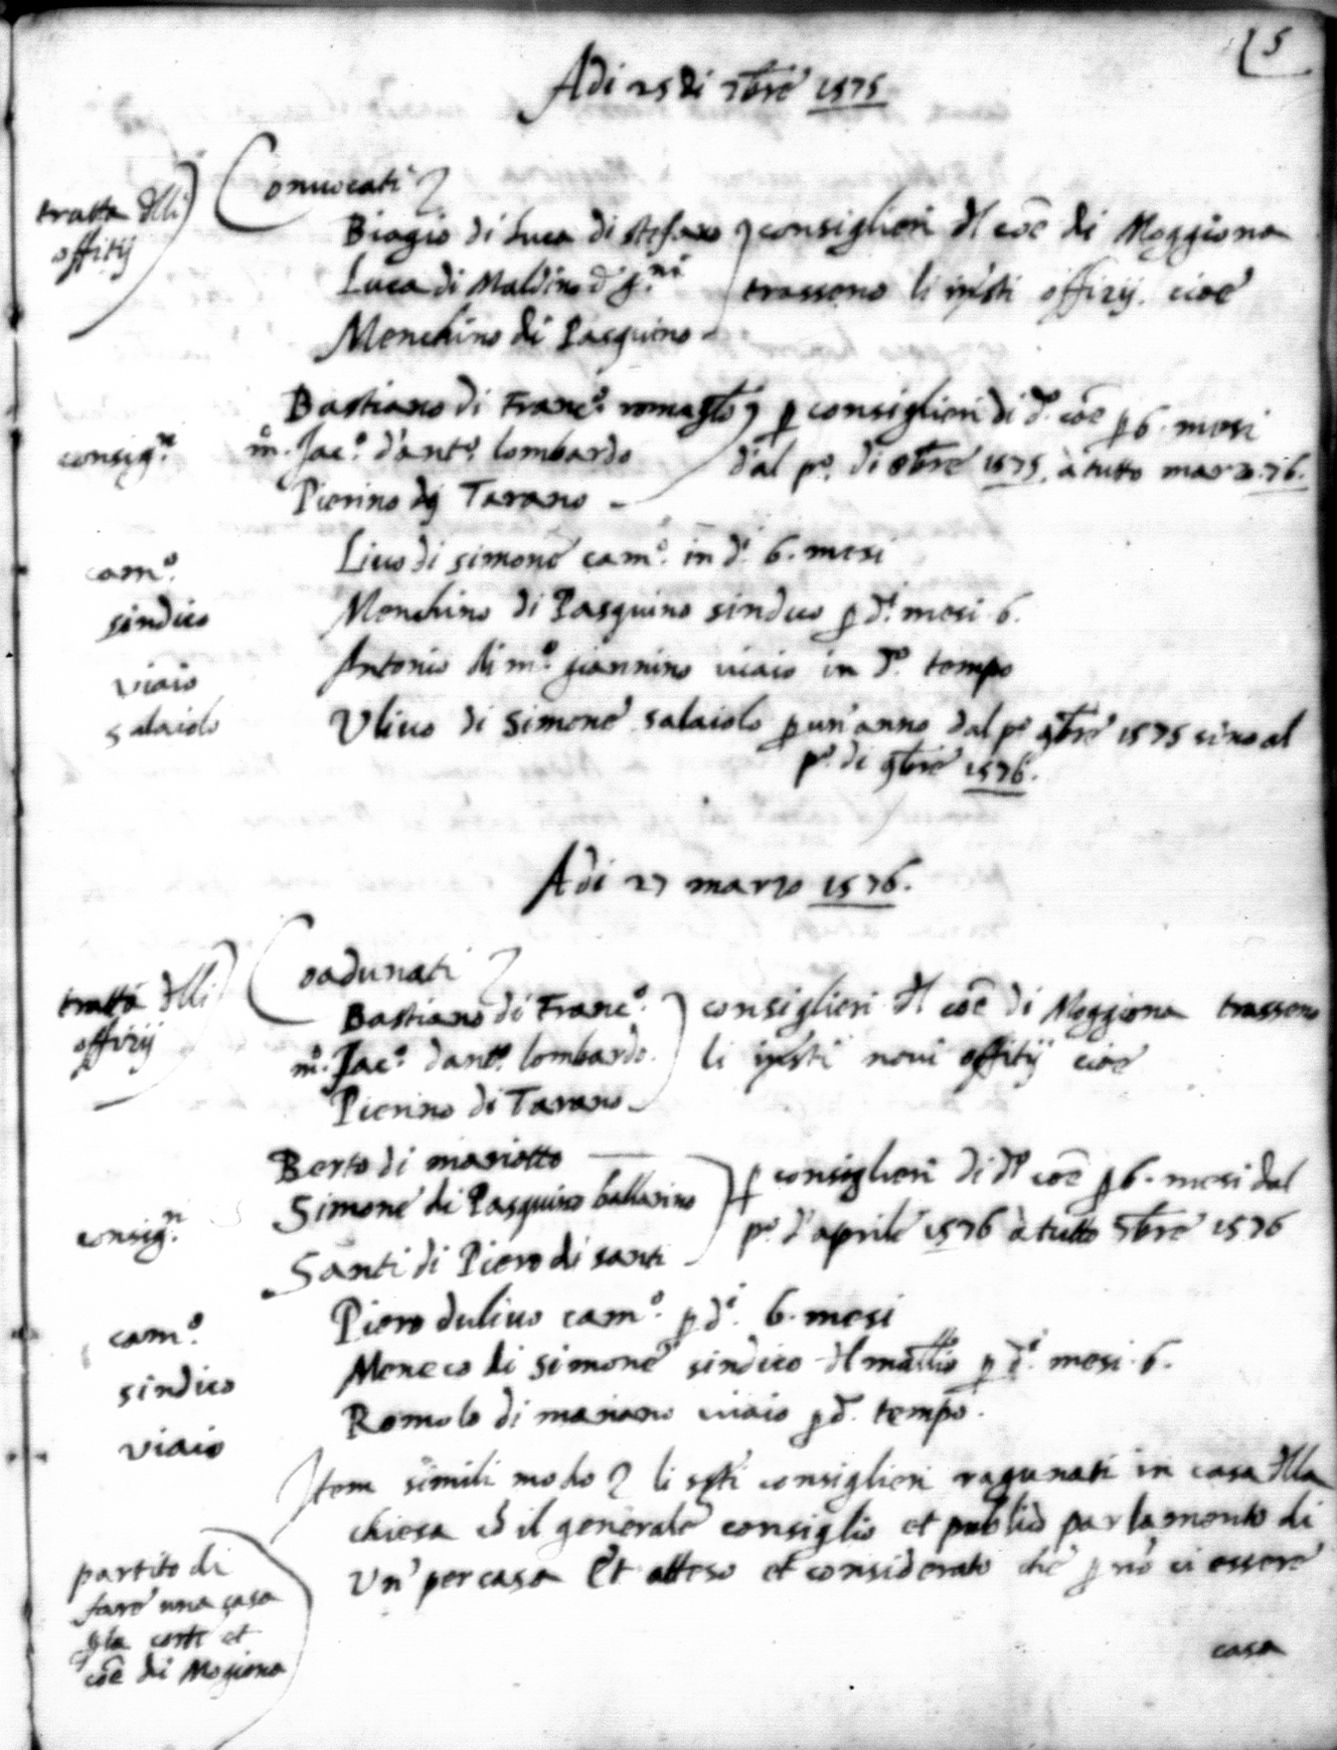 5
Adi 25 di 7bre 1575
tratta dlli
offitij
Conuocati
Biagio di Luca di stefano
Luca di Maldino
Menchino di Pasquino
consiglieri dl coe di Moggiona
trasseno li offizij cioe
consig.ri
Bastiano di Franc.o
m.o Jac.o d'ant.o lombardo
Pierino di Tarano
p consiglieri di d.o coe p 6. mesi
d'al p.o di 8bre 1575. à tutto marzo. 76.
cam.o
Liuo di simone cam.o in d.i 6. mesi
sindico
Menchino di Pasquino sindico p d.i mesi 6.
viaio
Antonio di m.o giannino viaio in d.o tempo
salaiolo
Vliuo di Simone salaiolo p un'anno dal p.o 9bre 1575 sino al
p.o di 9bre 1576.
Adi 27 marzo 1576.
tratta dlli
offizij
Coadunati
Bastiano di Franc.o
m.o Jac.o dant.o lombardo.
Pierino di Tarano
consiglieri dl coe di Moggiona trasseno
li noui offitij cioe
consig.ri
Berto di mariotto
Simone di Pasquino ballarino
Santi di Piero di santi
p consiglieri di d.o coe p 6. mesi dal
p.o d'aprile 1576 à tutto 7bre 1576
cam.o
Piero duliuo cam.o p d.i 6. mesi
sindico
Meneco di simone sindico dl p d.i mesi 6.
viaio
Romolo di mariano viaio p d. tempo.
Item simili modo li consiglieri ragunati in casa dlla
chiesa il generale consiglio et publico parlamento di
Un' per casa Et atteso et considerato che p nō ci essere
partito di
fare una casa
p la corte et
coe di Mogiona
casa